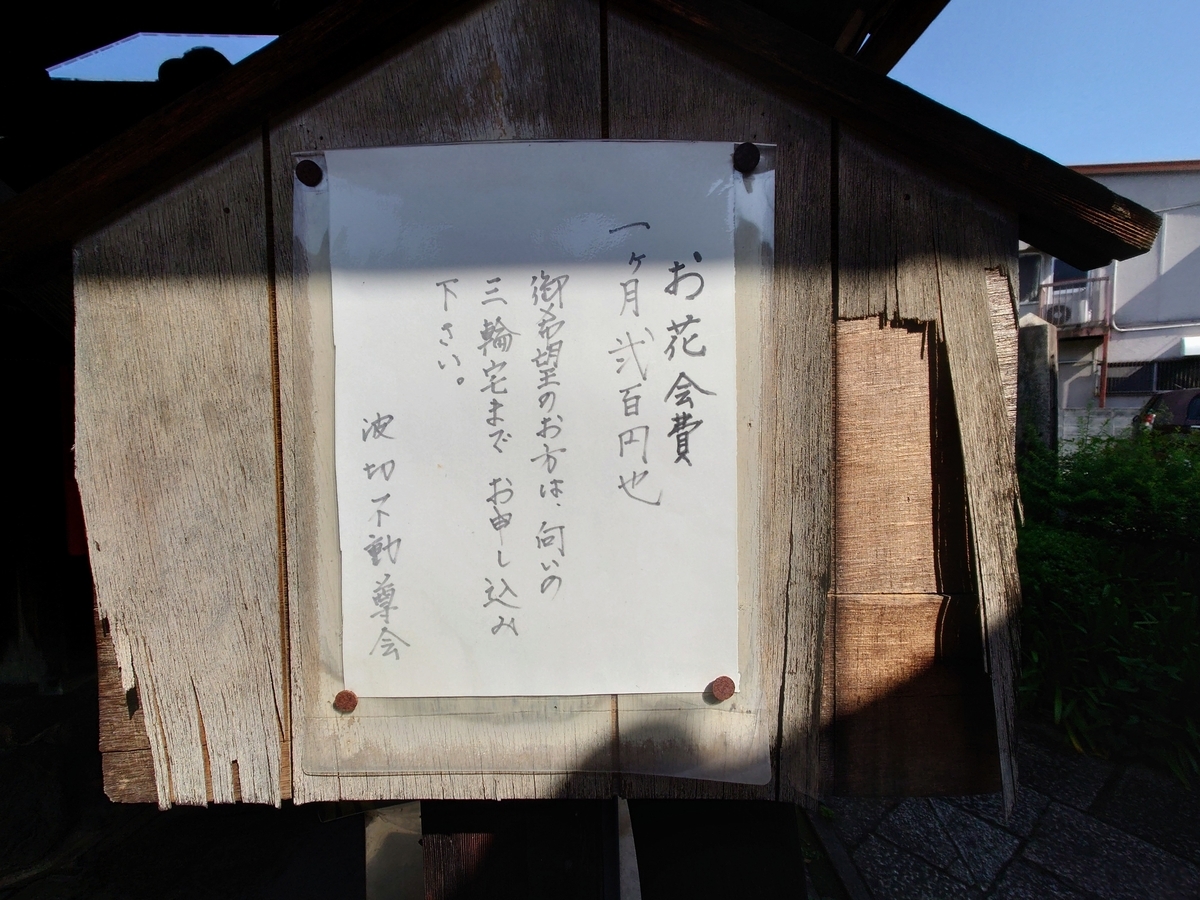 お花会費
一ヶ月弐百円也
御希望のお方は、向いの
三輪宅まで お申し込み
下さい。
波切不動尊会